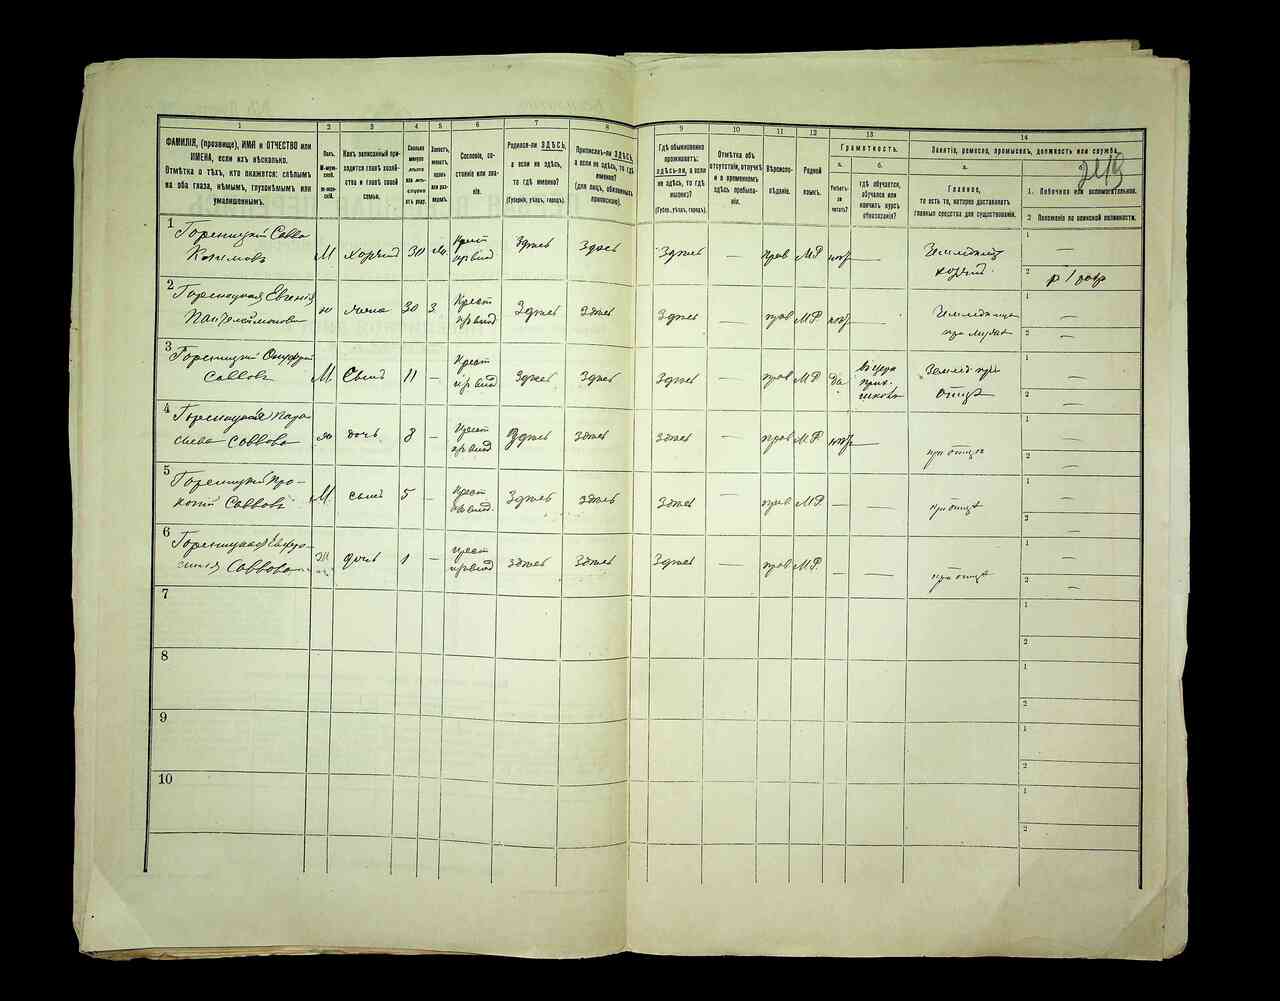 1
2
3
4
5
6
7
8
9
10
11
12
13
14
ФАМИЛІЯ, (прозвище), ИМЯ и ОТЧЕСТВО или
ИМЕНА, если ихъ нѣсколько.
Отмѣтка о тѣхъ, кто окажется: слѣпымъ
на оба глаза, нѣмымъ, глухонѣмымъ или
умалишеннымъ.
Полъ.
М-мужской.
Ж-женскій.
Какъ записанный при-
ходится главѣ хозяй-
ства и главѣ своей
семьи.
Сколько
минуло
лѣтъ
или мѣс-
яцевъ
отъ роду.
Сословіе, со-
стояніе или зва-
ніе.
Родился-ли ЗДѢСЬ,
а если не здѣсь,
то гдѣ именно?
(Губернія, уѣздъ, городъ).
Приписанъ-ли ЗДѢСЬ,
а если не здѣсь, то гдѣ
именно?
(для лицъ, обязанныхъ
припискою).
Гдѣ обыкновенно
проживаетъ:
здѣсь-ли, а если
не здѣсь, то гдѣ
именно?
(Губер., уѣздъ, городъ).
Отмѣтка объ
отсутствіи, отлучкѣ
и о временномъ
здѣсь пребыва-
ніи.
Вѣроиспо-
вѣданіе.
Родной
языкъ.
Грамотность.
а.
Умѣетъ-
ли
читать?
б.
гдѣ обучается,
обучался или
кончилъ курсъ
образованія?
Занятіе, ремесло, промыселъ, должность или служба.
а.
Главное,
то есть то, которое доставляетъ
главныя средства для существованія.
1. Побочное или вспомогательное.
2 Положеніе по воинской повинности.
1
Гореницкій Савва
М
30
Крест
Здѣсь
Здѣсь
Здѣсь
—
прав
МР
—
1
—
2
2
Гореницкая Евгенія
Пантелеймонова
жена
30
3
Крест
Здѣсь
Здѣсь
Здѣсь
—
прав
МР
—
1
—
2
—
3
Гореницкій Онуфрій
Саввовъ
М
Сынъ
11
—
Крест
Здѣсь
Здѣсь
Здѣсь
—
прав
МР
да
Землед при
отцѣ
1
—
2
—
4
Гореницкая Пара-
скева Саввова
дочь
8
—
Крест
Здѣсь
Здѣсь
Здѣсь
—
прав
МР
—
при отцѣ
1
—
2
—
5
Гореницкій Про-
копій Саввовъ
М
сынъ
5
—
Крест
Здѣсь
Здѣсь
Здѣсь
—
прав
МР.
—
—
при отцѣ
1
—
2
—
6
Гореницкая Евфро-
синія Саввова
Дочь
1
—
Крест
Здѣсь
Здѣсь
Здѣсь
—
прав
МР.
—
—
при отцѣ
1
—
2
—
7
1
2
8
1
2
9
1
2
10
1
2